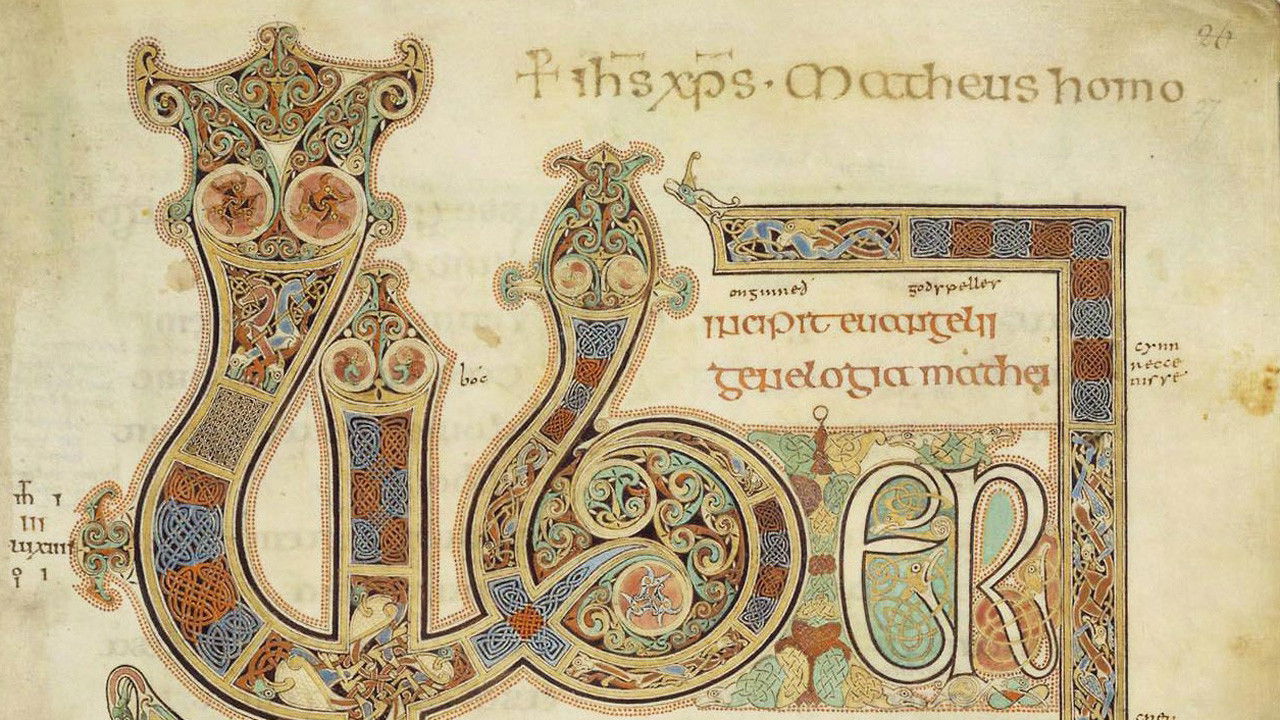 26
+ ih̄s xp̄s · Matheus homo
27
onginneð godspelles
incipit euangelii
genelogia mathei
boc
cynn
recce
nisse
m̄ I
III
Lib
er